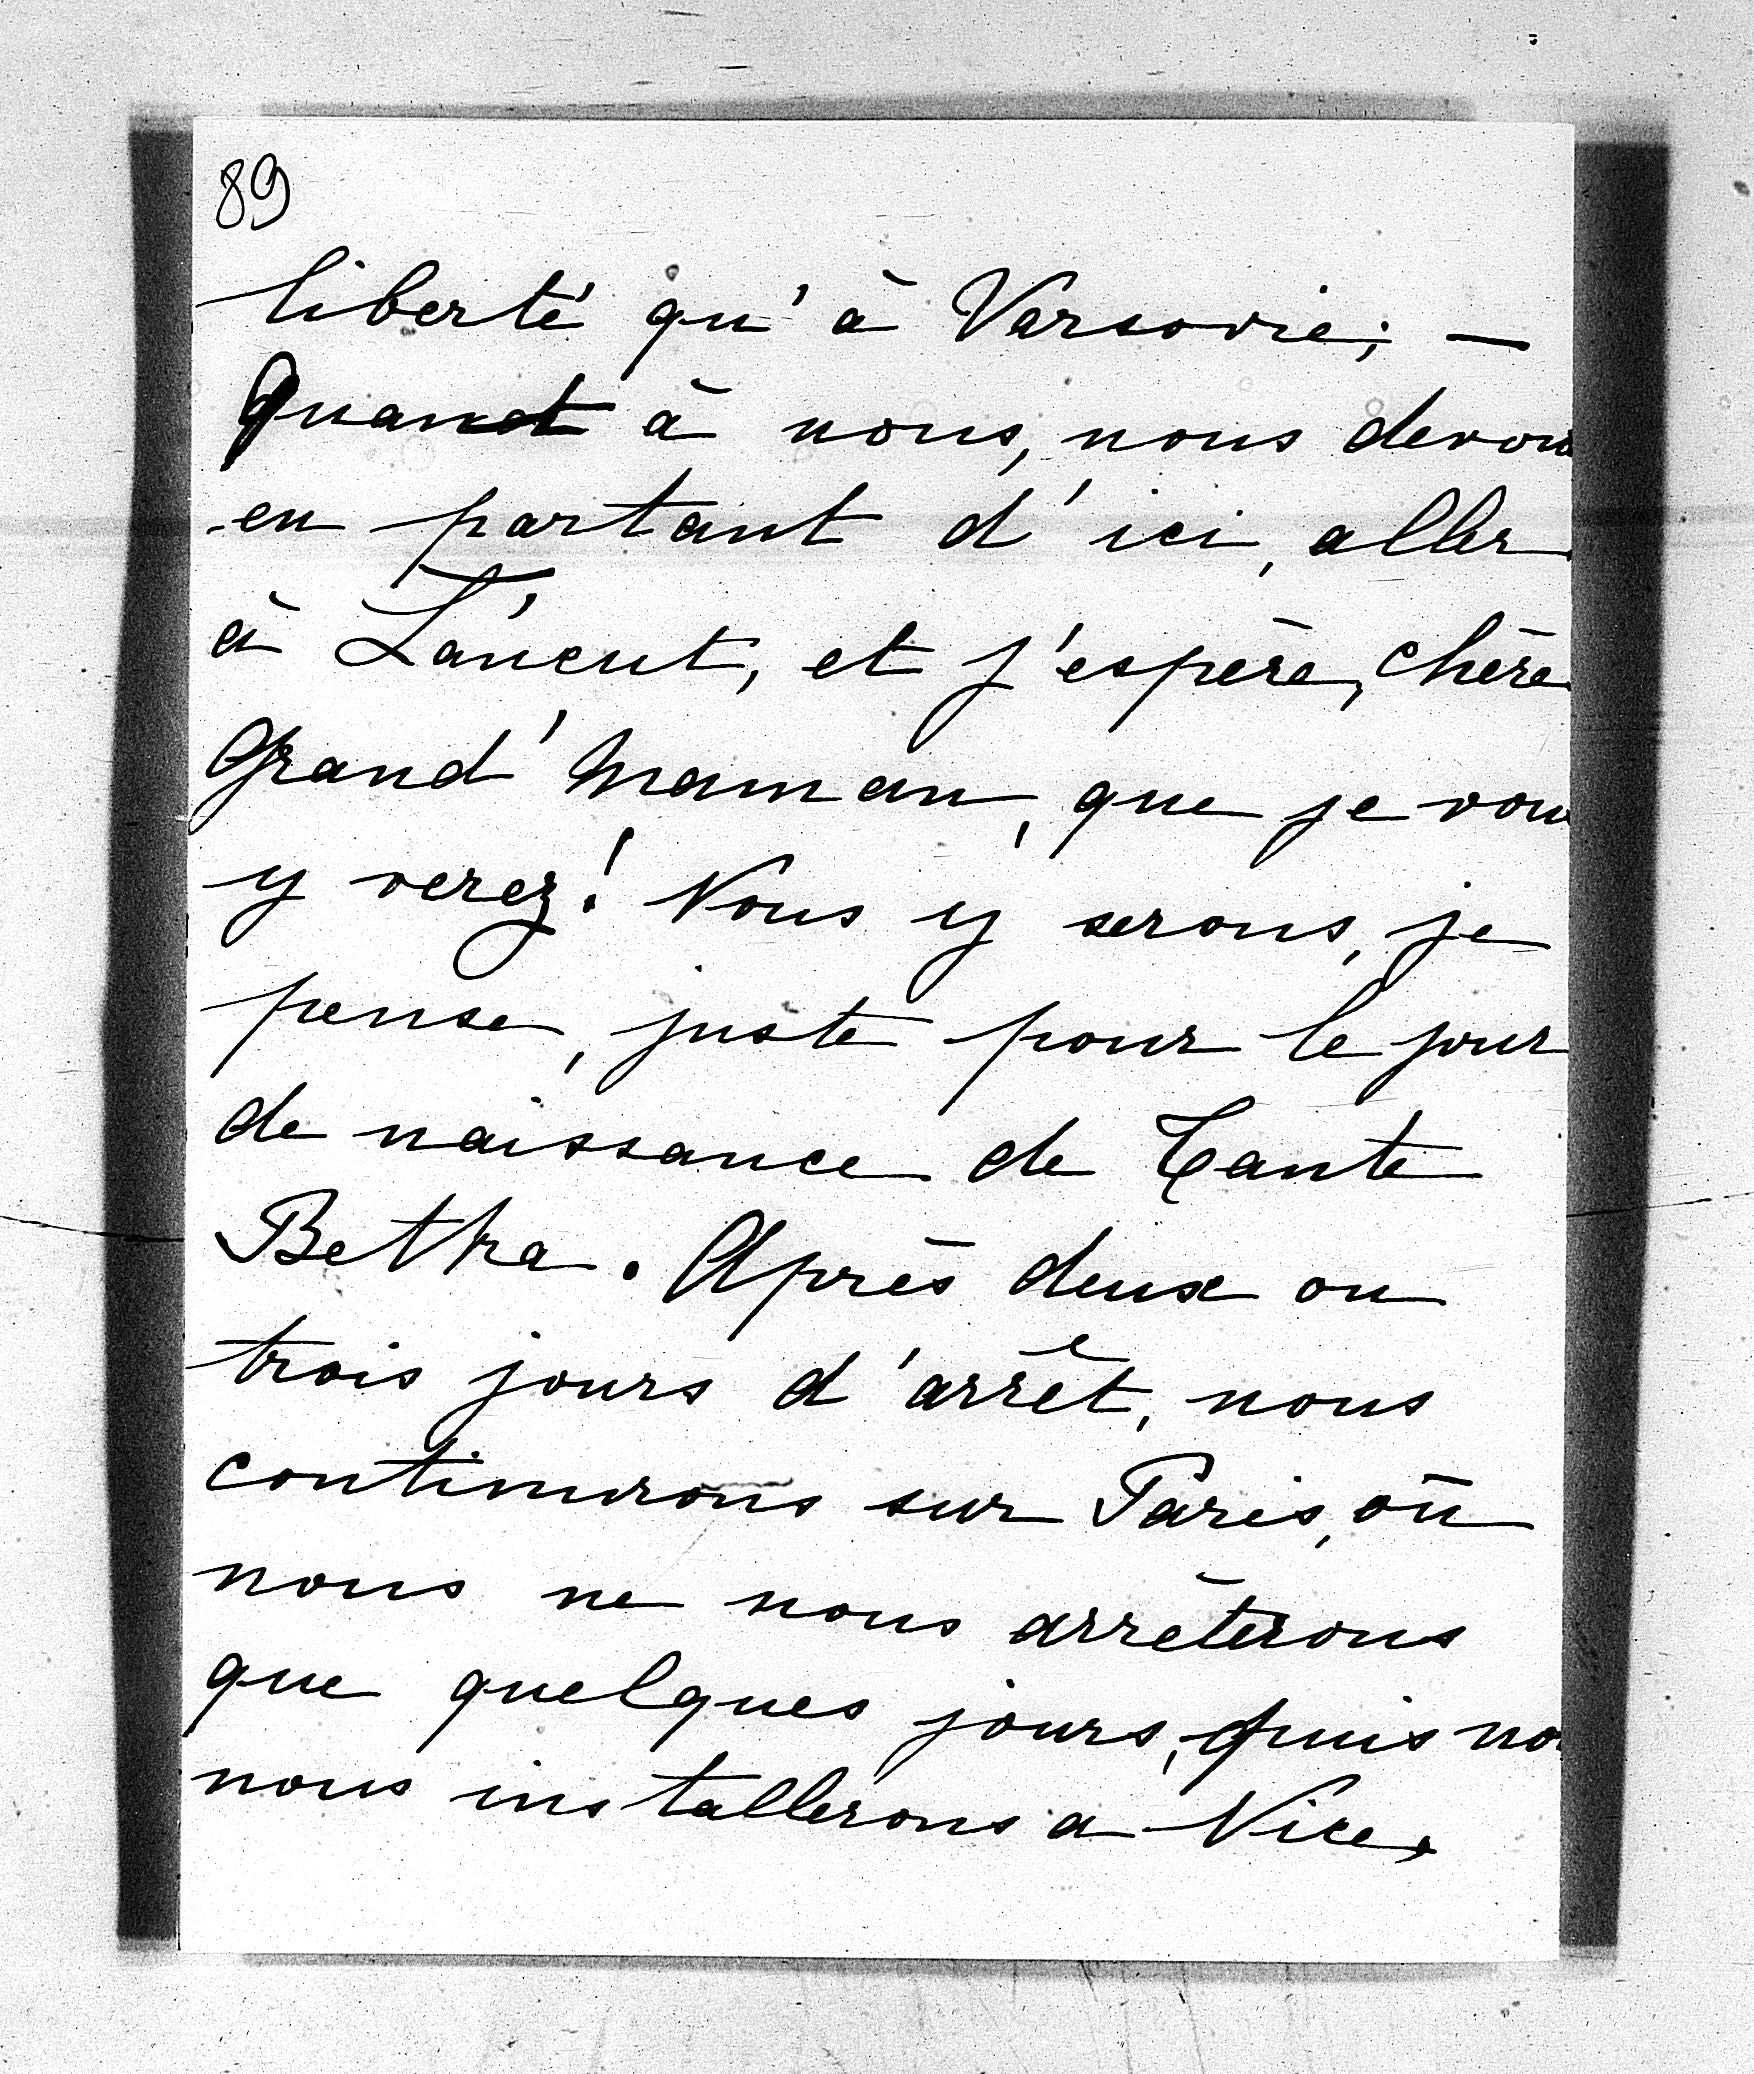 89
liberté qu'à Varsovie; —
Quant à nous, nous devons
en partant d'ici, aller
à Łańcut, et j'espère, chère
Grand'Maman, que je vous
y verez! Nous y serons, je
pense, juste pour le jour
de naissance de Tante
Betka. Après deux ou
trois jours d'arrêt, nous
continurons sur Paris, où
nous ne nous arrêterons
que quelques jours, puis no
nous installerons a Nice,